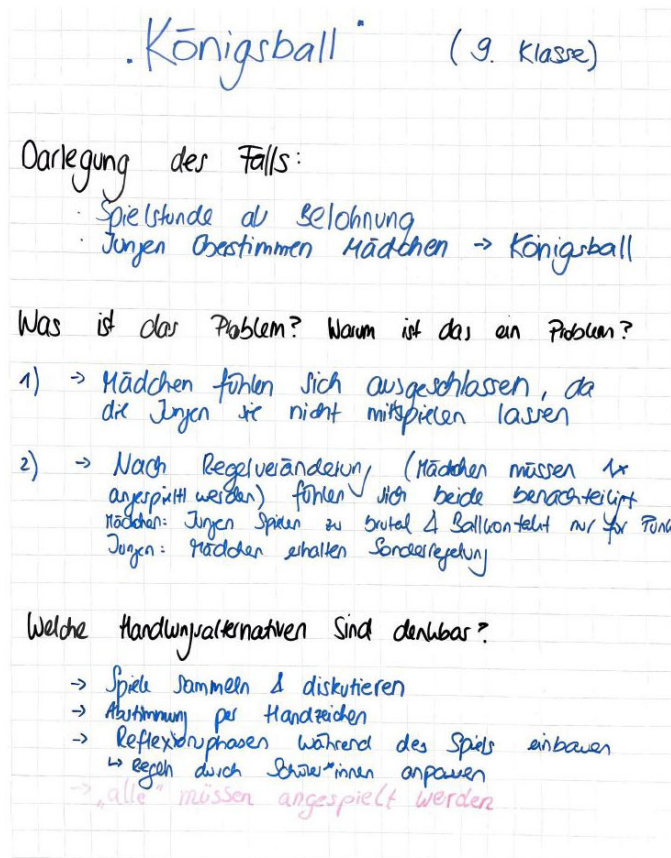 "Königsball" (9. Klasse)
Darlegung des Falls:
· Spielstunde als Belohnung
· Jungen überstimmen Mädchen → Königsball
Was ist das Problem? Warum ist das ein Problem?
1) → Mädchen fühlen sich ausgeschlossen, da
die Jungen sie nicht mitspielen lassen
2) → Nach Regelveränderung (Mädchen müssen 1x
angespielt werden) fühlen sich beide benachteiligt
Mädchen: Jungen spielen zu brutal & Ballkontakt nur für Punk
Jungen: Mädchen erhalten Sonderregelung
Welche Handlungsalternativen sind denkbar?
→ Spiele sammeln & diskutieren
→ Abstimmung per Handzeichen
→ Reflexionsphasen während des Spiels einbauen
↳ Regeln durch Schüler*innen anpassen
→ „alle" müssen angespielt werden